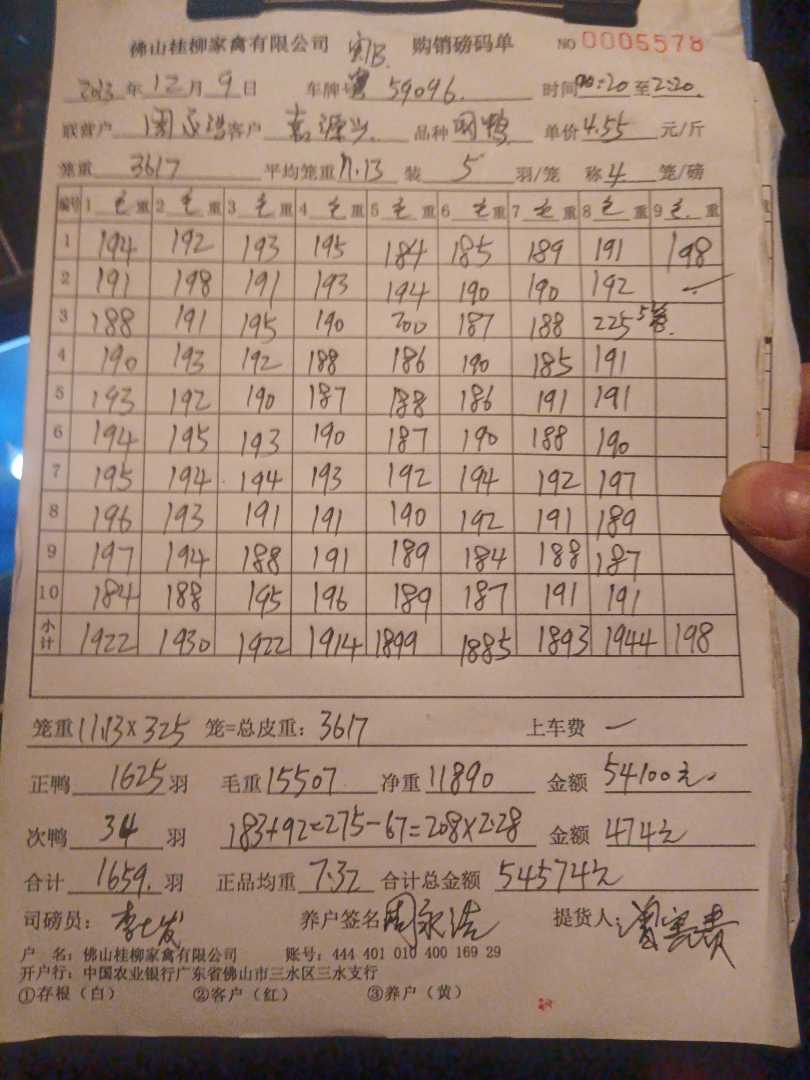 佛山桂柳家禽有限公司 购销磅码单 NO 0005578
2023年12月9日 车牌号 59096. 时间 00:20至2:20.
联营户 周永浩 客户 嘉源兴 品种 网鸭 单价4.55元/斤
笼重 3617 平均笼重11.13 装 5 羽/笼 称4笼/磅
编号 1毛重 2毛重 3毛重 4毛重 5毛重 6毛重 7毛重 8毛重 9毛.重
1 194 192 193 195 184 185 189 191 198
2 191 198 191 193 194 190 190 192
3 188 191 195 190 200 187 188 225 5笼.
4 190 193 192 188 186 190 185 191
5 193 192 190 187 188 186 191 191
6 194 195 193 190 187 190 188 190
7 195 194 194 193 192 194 192 197
8 196 193 191 191 190 192 191 189
9 197 194 188 191 189 184 188 187
10 184 188 195 196 189 187 191 191
小计 1922 1930 1922 1914 1899 1885 1893 1944 198
笼重11.13×325 笼=总皮重：3617 上车费 一
正鸭 1625 羽 毛重15507 净重11890 金额 54100元.
次鸭 34 羽 183+92=275-67=208×2.28 金额 474元
合计 1659.羽 正品均重 7.32 合计总金额 54574元
司磅员： 养户签名 周永浩 提货人：
户 名：佛山桂柳家禽有限公司 账号：444 401 010 400 169 29
开户行：中国农业银行广东省佛山市三水区三水支行
①存根（白） ②客户（红） ③养户（黄）